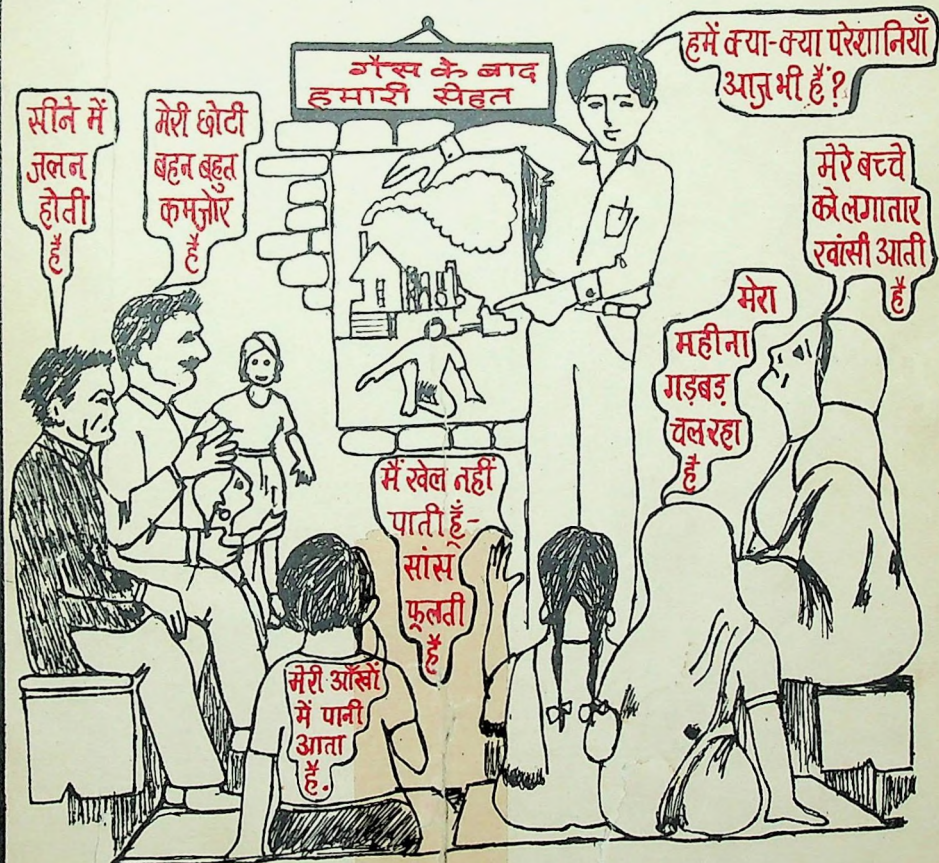 गैस के बाद
हमारी सेहत
हमें क्या-क्या परेशानियाँ
आज भी हैं?
सीने में
जलन
होती
है
मेरी छोटी
बहन बहुत
कमज़ोर
है
मेरे बच्चे
को लगातार
खांसी आती
है
मेरा
महीना
गड़बड़
चल रहा
है
मैं खेल नहीं
पाती हूँ-
सांस
फूलती
है
मेरी आँखों
में पानी
आता
है.